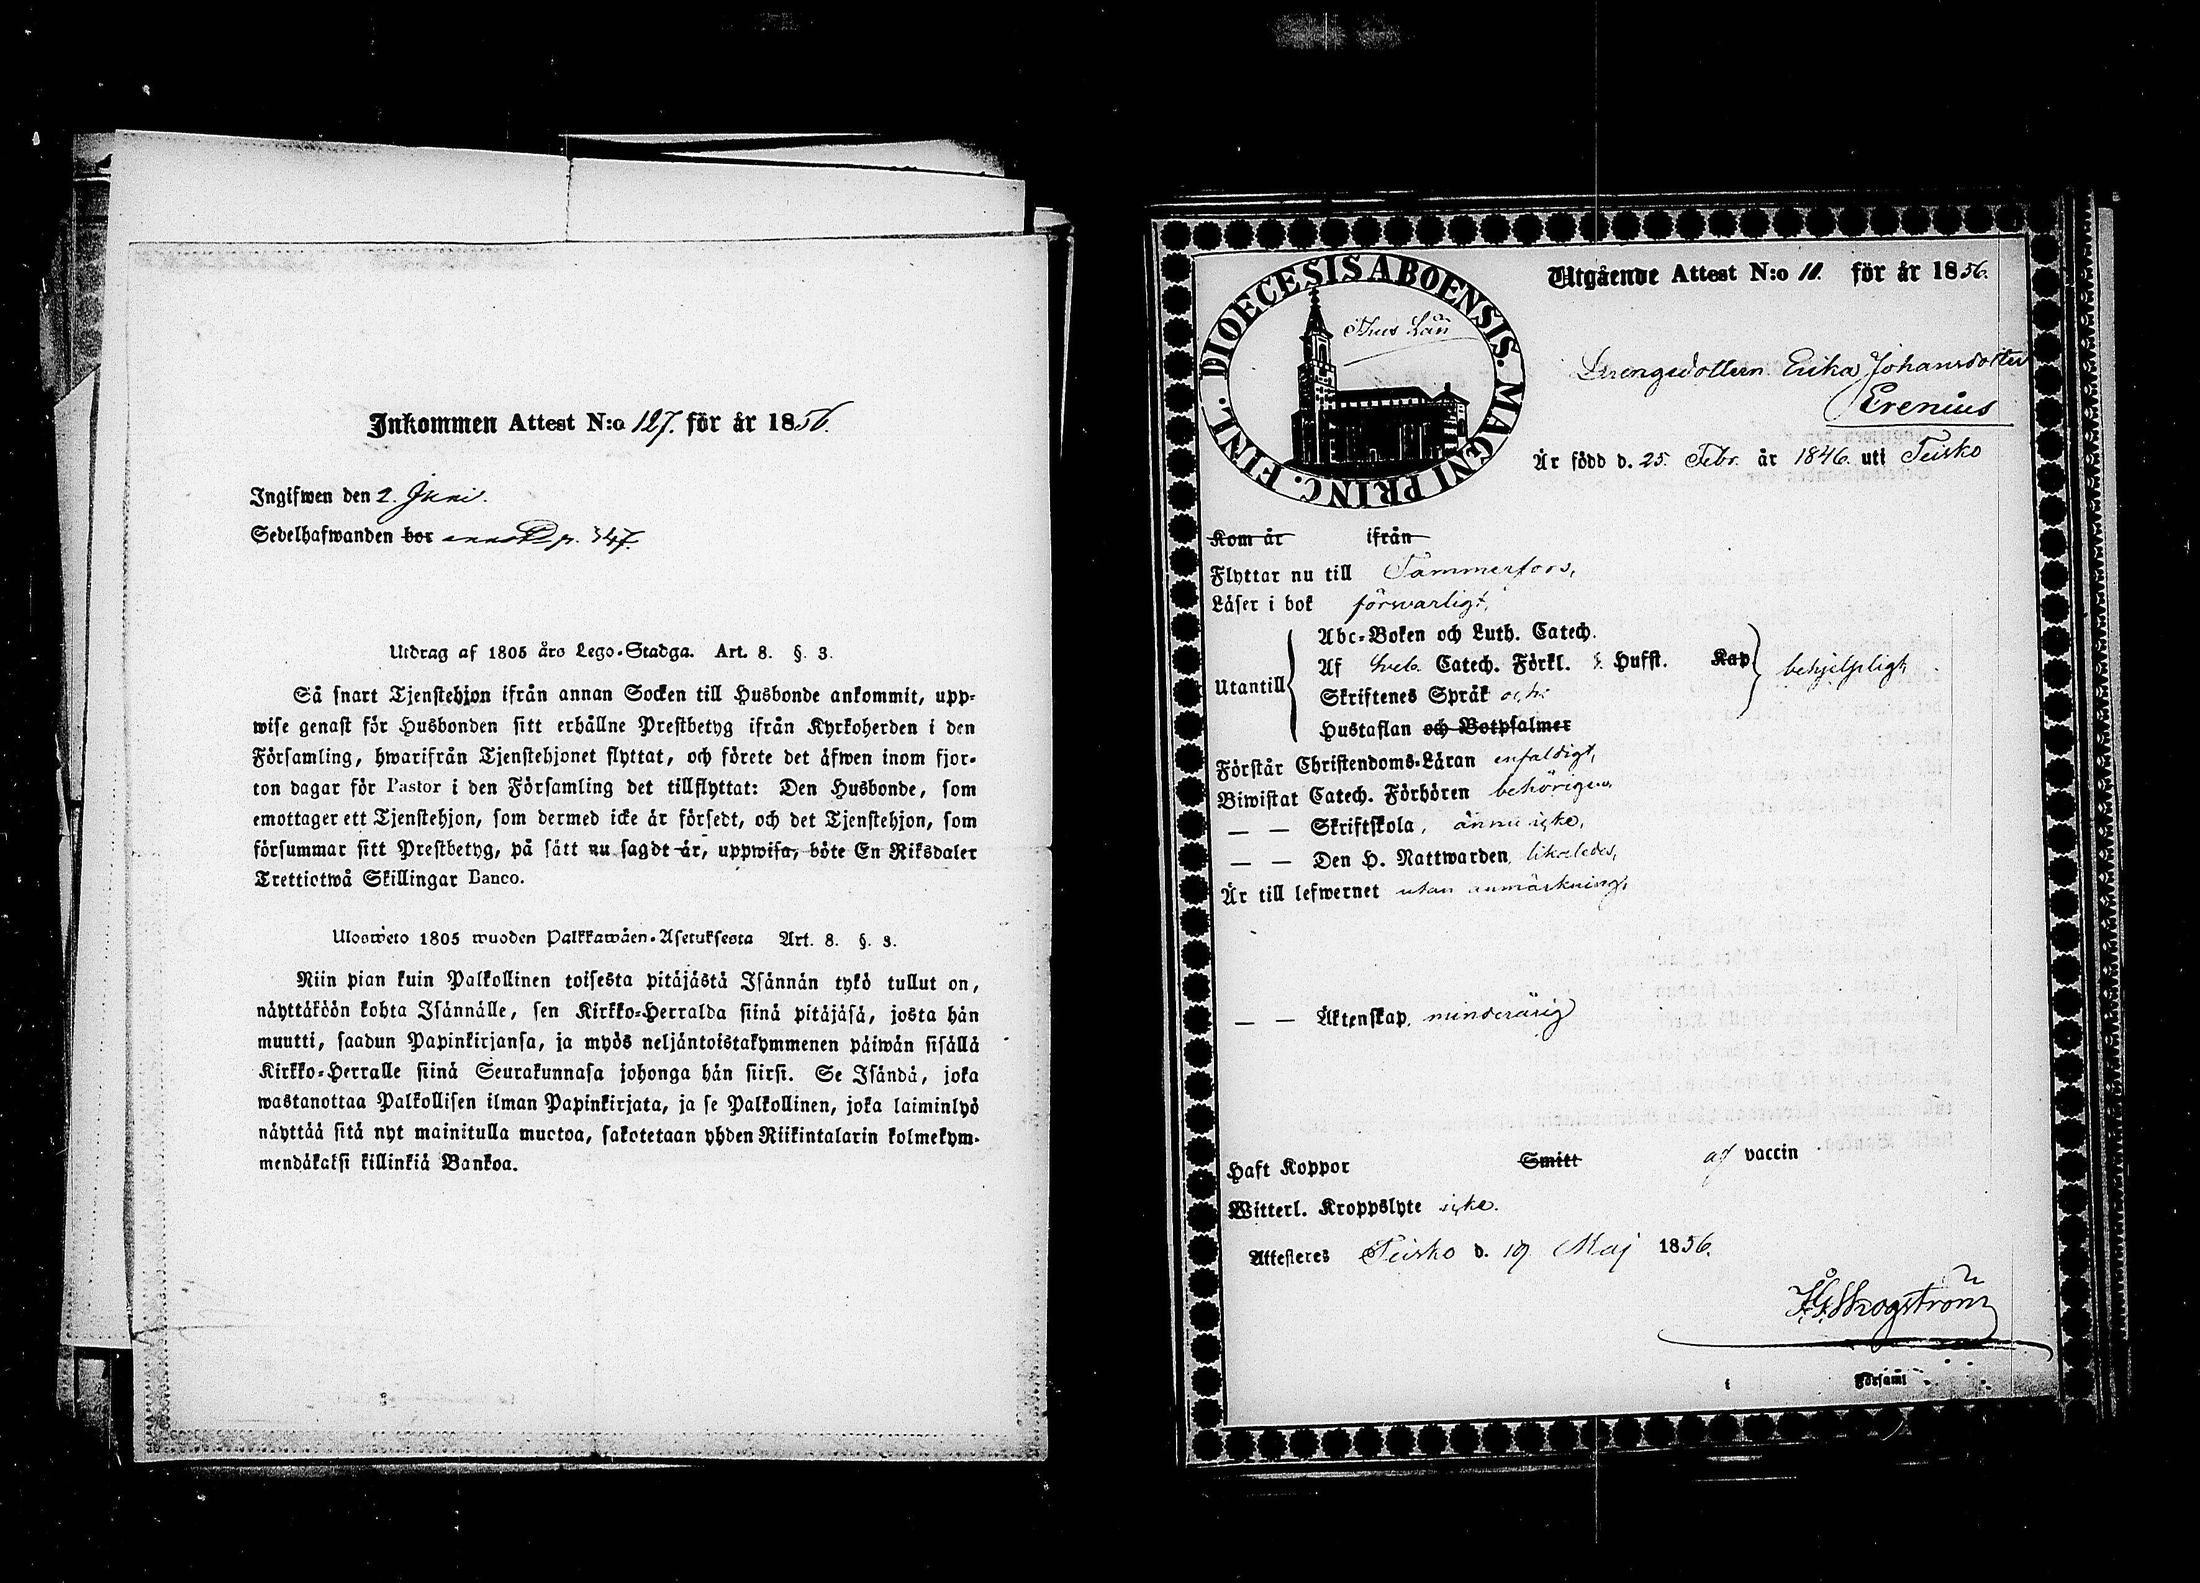 Inkommen Attest N:o 127. för år 1856.
Ingifwen den 2. Juni.
Sedelhafwanden bor p. 347.
Utdrag af 1805 års Lego-Stadga. Art. 8. §. 3.
Så snart Tjenstehjon ifrån annan Socken till Husbonde ankommit, upp-
wise genast för Husbonden sitt erhållne Prestbetyg ifrån Kyrkoherden i den
Församling, hwarifrån Tjenstehjonet flyttat, och förete det äfwen inom fjor-
ton dagar för Pastor i den Församling det tillflyttat: Den Husbonde, som
emottager ett Tjenstehjon, som dermed icke är försedt, och det Tjenstehjon, som
försummar sitt Prestbetyg, på sätt nu sagdt är, uppwisa, böte En Riksdaler
Trettiotwå Skillingar Banco.
Ulosweto 1805 wuoden Palkkawäen-Asetuksesta Art. 8. §. 3.
Niin pian kuin Palkollinen toisesta pitäjästä Isännän tykö tullut on,
näyttäköön kohta Isännälle, sen Kirkko-Herralda siinä pitäjäsä, josta hän
muutti, saadun Papinkirjansa, ja myös neljäntoistakymmenen päiwän sisällä
Kirkko-Herralle siinä Seurakunnasa johonga hän siirsi. Se Isändä, joka
wastanottaa Palkollisen ilman Papinkirjata, ja se Palkollinen, joka laiminlyö
näyttää sitä nyt mainitulla muotoa, sakotetaan yhden Riikintalarin kolmekym-
mendäkaksi killinkiä Bankoa.
DIOECESIS ABOENSIS. MAGNI PRINC. FINL.
Thus Län
Utgående Attest N:o 11. för år 1856.
Drengedottern Erika Johansdotter
Erenius
Är född d. 25. Febr. år 1846. uti Teisko
Kom år ifrån
Flyttar nu till Tammerfors,
Läser i bok förswarligt,
Utantill
Abc-Boken och Luth. Catech.
Af Sveb. Catech. Förkl. Hufst. Kap
Skriftenes Språk och
Hustaflan och Botpsalmer
behjelpligt
Förstår Christendoms-Läran enfaldigt,
Biwistat Catech. Förhören behörigen,
— — Skriftskola, ännu icke,
— — Den H. Nattwarden likaledes,
Är till lefwernet utan anmärkning,
— — Äktenskap, minderårig
Haft Koppor Smitt af vaccin
Witterl. Kroppslyte icke.
Attesteres Teisko d. 19 Maj 1856.
Skogström
i Församl